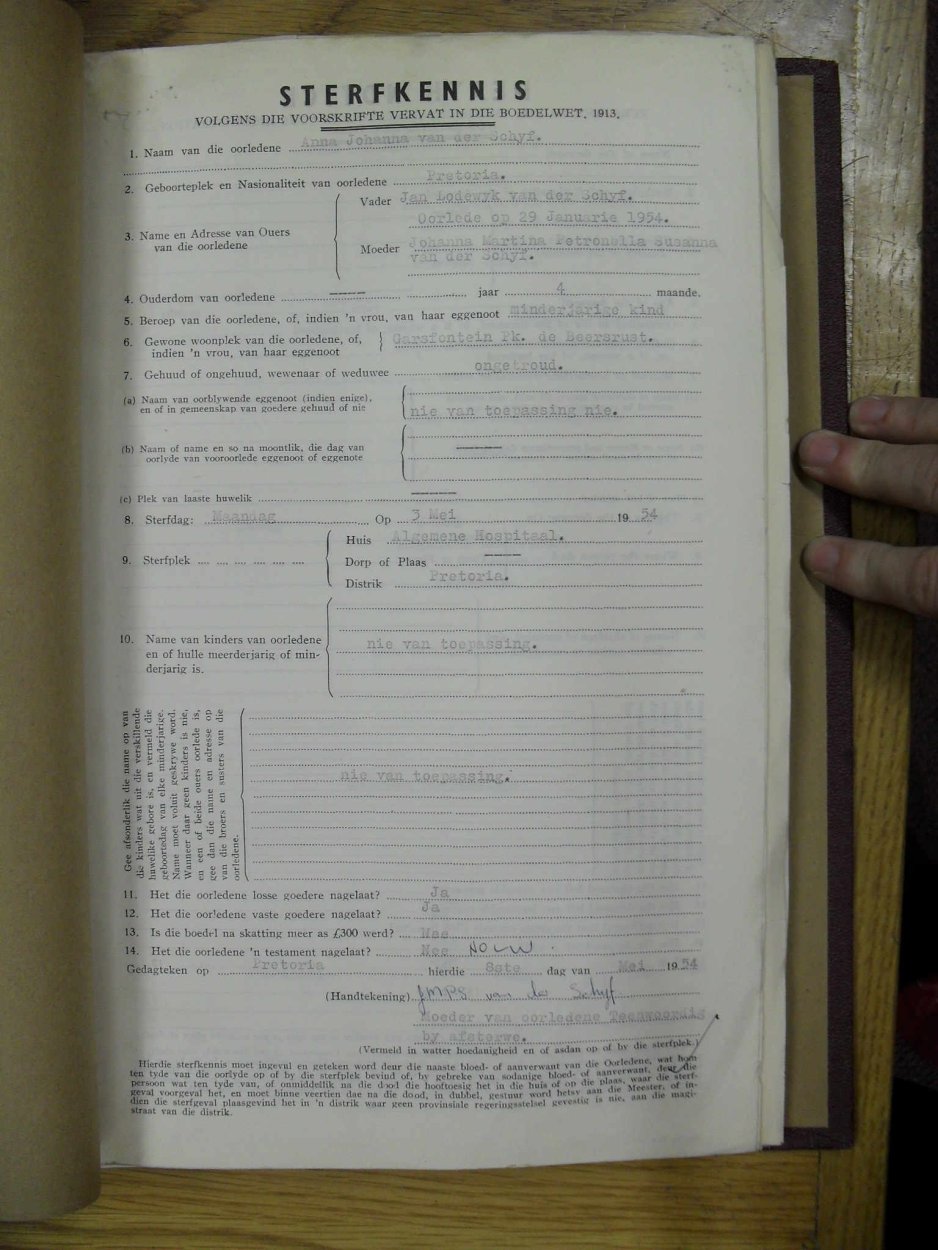 STERFKENNIS
VOLGENS DIE VOORSKRIFTE VERVAT IN DIE BOEDELWET, 1913.
1. Naam van die oorledene Anna Johanna van der Schyf.
2. Geboorteplek en Nasionaliteit van oorledene Pretoria.
3. Name en Adresse van Ouers van die oorledene
Vader Jan Lodewyk van der Schyf.
Oorlede op 29 Januarie 1954.
Moeder Johanna Martina Petronella Susanna
van der Schyf.
4. Ouderdom van oorledene ---- jaar 4 maande.
5. Beroep van die oorledene, of, indien 'n vrou, van haar eggenoot minderjarige kind
6. Gewone woonplek van die oorledene, of, Garsfontein Pk. de Beersrust.
indien 'n vrou, van haar eggenoot
7. Gehuud of ongehuud, wewenaar of weduwee ongetroud.
(a) Naam van oorblywende eggenoot (indien enige),
en of in gemeenskap van goedere gehuud of nie nie van toepassing nie.
(b) Naam of name en so na moontlik, die dag van
oorlyde van vooroorlede eggenoot of eggenote -----
(c) Plek van laaste huwelik -----
8. Sterfdag: Maandag Op 3 Mei 1954
9. Sterfplek
Huis Algemene Hospitaal.
Dorp of Plaas ----
Distrik Pretoria.
10. Name van kinders van oorledene nie van toepassing.
en of hulle meerderjarig of min-
derjarig is.
Gee afsonderlik die name op van
die kinders wat uit die verskillende
huwelike gebore is, en vermeld die
geboortedag van elke minderjarige.
Name moet voluit geskrywe word.
Wanneer daar geen kinders is nie,
en een of beide ouers oorlede is,
gee dan die name en adresse op
van die broers en susters van die
oorledene.
nie van toepassing.
11. Het die oorledene losse goedere nagelaat? Ja
12. Het die oorledene vaste goedere nagelaat? Ja
13. Is die boedel na skatting meer as £300 werd? Nee
14. Het die oorledene 'n testament nagelaat? Nee
Gedagteken op Pretoria hierdie 8ste dag van Mei 1954
(Handtekening) JMPS van der Schyf
Moeder van oorledene Teenwoordig
by afsterwe.
(Vermeld in watter hoedanigheid en of asdan op of by die sterfplek.)
Hierdie sterfkennis moet ingevul en geteken word deur die naaste bloed- of aanverwant van die Oorledene, wat hom
ten tyde van die oorlyde op of by die sterfplek bevind of, by gebreke van sodanige bloed- of aanverwant, deur die
persoon wat ten tyde van, of onmiddellik na die dood die hooftoesig het in die huis of op die plaas, waar die sterf-
geval voorgeval het, en moet binne veertien dae na die dood, in dubbel, gestuur word hetsy aan die Meester, of in-
dien die sterfgeval plaasgevind het in 'n distrik waar geen provinsiale regeringsstelsel gevestig is nie, aan die magi-
straat van die distrik.